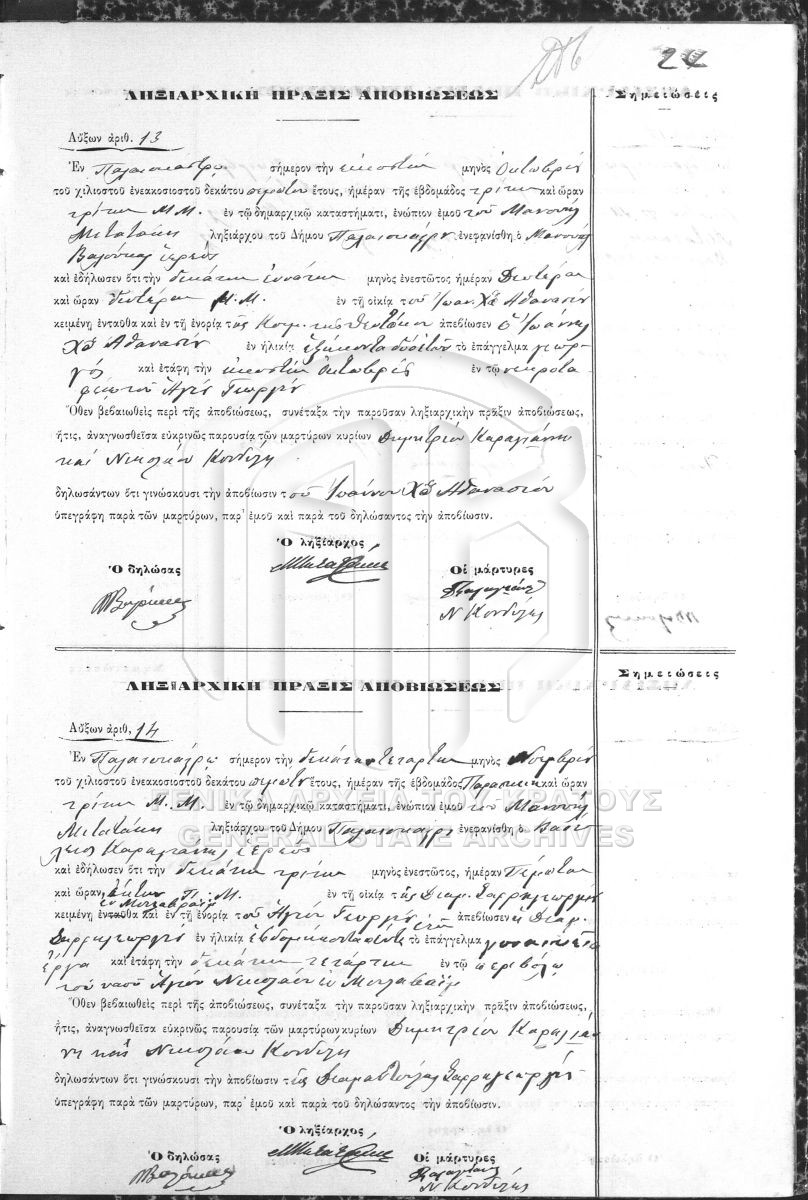 2
ΛΗΞΙΑΡΧΙΚΗ ΠΡΑΞΙΣ ΑΠΟΒΙΩΣΕΩΣ
Σημειώσεις
Αὔξων ἀριθ. 13
Ἐν Παλαιοκάστρῳ σήμερον τὴν εἰκοστὴν μηνὸς Ὀκτωβρίου
τοῦ χιλιοστοῦ ἐνεακοσιοστοῦ δεκάτου πρώτου ἔτους, ἡμέραν τῆς ἑβδομάδος τρίτην καὶ ὥραν
τρίτην Μ.Μ. ἐν τῷ δημαρχικῷ καταστήματι, ἐνώπιον ἐμοῦ τοῦ Μανουὴλ
Μετατάκη ληξιάρχου τοῦ Δήμου Παλαιοκάστρου ἐνεφανίσθη ὁ Μανουὴλ
ἱερεὺς
καὶ ἐδήλωσεν ὅτι τὴν δεκάτην ἐννάτην μηνὸς ἐνεστῶτος ἡμέραν Δευτέραν
καὶ ὥραν δευτέραν Μ.Μ. ἐν τῇ οἰκίᾳ τοῦ Ἰωαν. Χ΄΄ Ἀθανασίου
κειμένῃ ἐνταῦθα καὶ ἐν τῇ ἐνορίᾳ τῆς Κοιμ. τῆς Θεοτόκου ἀπεβίωσεν ὁ Ἰωάννης
Χ΄΄ Ἀθανασίου ἐν ἡλικίᾳ ἑξήκοντα δύο ἐτῶν τὸ ἐπάγγελμα γεωρ-
γὸς καὶ ἐτάφη τὴν εἰκοστὴν Ὀκτωβρίου ἐν τῷ νεκροτα-
φείῳ τοῦ Ἁγίου Γεωργίου
Ὅθεν βεβαιωθεὶς περὶ τῆς ἀποβιώσεως, συνέταξα τὴν παροῦσαν ληξιαρχικὴν πρᾶξιν ἀποβιώσεως,
ἥτις, ἀναγνωσθεῖσα εὐκρινῶς παρουσίᾳ τῶν μαρτύρων κυρίων Δημητρίου Καραγιάννη
καὶ Νικολάου Κονδύλη
δηλωσάντων ὅτι γινώσκουσι τὴν ἀποβίωσιν τοῦ Ἰωάννου Χ΄΄ Ἀθανασίου
ὑπεγράφη παρὰ τῶν μαρτύρων, παρ' ἐμοῦ καὶ παρὰ τοῦ δηλώσαντος τὴν ἀποβίωσιν.
Ὁ ληξίαρχος
Ὁ δηλώσας
Οἱ μάρτυρες
ΜΜετατάκης
Ν Κονδύλης
ΛΗΞΙΑΡΧΙΚΗ ΠΡΑΞΙΣ ΑΠΟΒΙΩΣΕΩΣ
Σημειώσεις
Αὔξων ἀριθ. 14
Ἐν Παλαιοκάστρῳ σήμερον τὴν δεκάτην τετάρτην μηνὸς Νοεμβρίου
τοῦ χιλιοστοῦ ἐνεακοσιοστοῦ δεκάτου πρώτου ἔτους, ἡμέραν τῆς ἑβδομάδος Παρασκευὴν καὶ ὥραν
τρίτην Μ.Μ. ἐν τῷ δημαρχικῷ καταστήματι, ἐνώπιον ἐμοῦ τοῦ Μανουὴλ
Μετατάκη ληξιάρχου τοῦ Δήμου Παλαιοκάστρου ἐνεφανίσθη ὁ Βασί-
λειος Καραγιάννης ἱερεὺς
καὶ ἐδήλωσεν ὅτι τὴν δεκάτην τρίτην μηνὸς ἐνεστῶτος, ἡμέραν Πέμπτην
καὶ ὥραν ἕκτην Π.Μ. ἐν τῇ οἰκίᾳ τῆς Διαμ. Σαρρηγεωργίου
κειμένῃ ἐνταῦθα καὶ ἐν τῇ ἐνορίᾳ τοῦ Ἁγίου Γεωργίου ἀπεβίωσεν ἡ Διαμ.
Σαρρηγεωργίου ἐν ἡλικίᾳ ἑβδομήκοντα πέντε τὸ ἐπάγγελμα γυναικεῖα
ἔργα καὶ ἐτάφη τὴν δεκάτην τετάρτην ἐν τῷ περιβόλῳ
τοῦ ναοῦ Ἁγίου Νικολάου ἐν
Ὅθεν βεβαιωθεὶς περὶ τῆς ἀποβιώσεως, συνέταξα τὴν παροῦσαν ληξιαρχικὴν πρᾶξιν ἀποβιώσεως,
ἥτις, ἀναγνωσθεῖσα εὐκρινῶς παρουσίᾳ τῶν μαρτύρων κυρίων Δημητρίου Καραγιάν-
νη καὶ Νικολάου Κονδύλη
δηλωσάντων ὅτι γινώσκουσι τὴν ἀποβίωσιν τῆς Διαμαντούλας Σαρρηγεωργίου
ὑπεγράφη παρὰ τῶν μαρτύρων, παρ' ἐμοῦ καὶ παρὰ τοῦ δηλώσαντος τὴν ἀποβίωσιν.
Ὁ ληξίαρχος
Ὁ δηλώσας
Οἱ μάρτυρες
ΜΜετατάκης
Ν Κονδύλης
ΓΕΝΙΚΑ ΑΡΧΕΙΑ ΤΟΥ ΚΡΑΤΟΥΣ
GENERAL STATE ARCHIVES